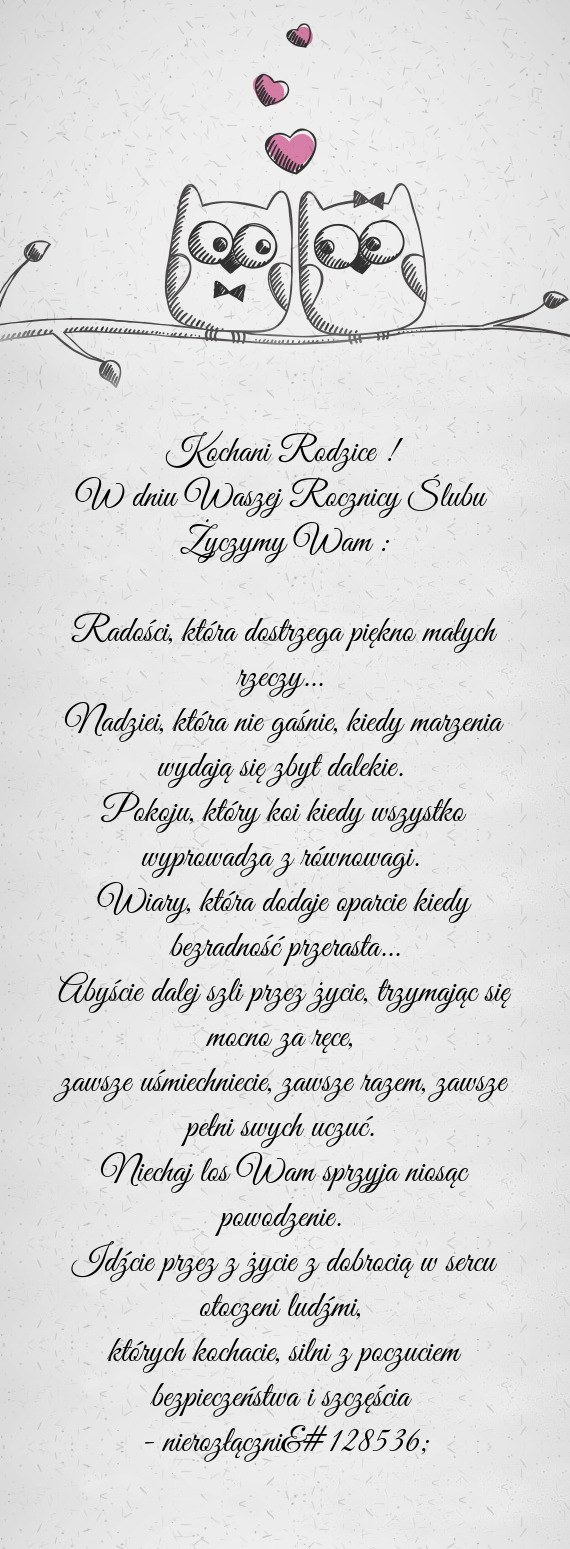 Kochani Rodzice !
W dniu Waszej Rocznicy Ślubu
Życzymy Wam :
Radości, która dostrzega piękno małych
rzeczy...
Nadziei, która nie gaśnie, kiedy marzenia
wydają się zbyt dalekie.
Pokoju, który koi kiedy wszystko
wyprowadza z równowagi.
Wiary, która dodaje oparcie kiedy
bezradność przerasta...
Abyście dalej szli przez życie, trzymając się
mocno za ręce,
zawsze uśmiechniecie, zawsze razem, zawsze
pełni swych uczuć.
Niechaj los Wam sprzyja niosąc
powodzenie.
Idźcie przez z życie z dobrocią w sercu
otoczeni ludźmi,
których kochacie, silni z poczuciem
bezpieczeństwa i szczęścia
- nierozłączni&#128536;